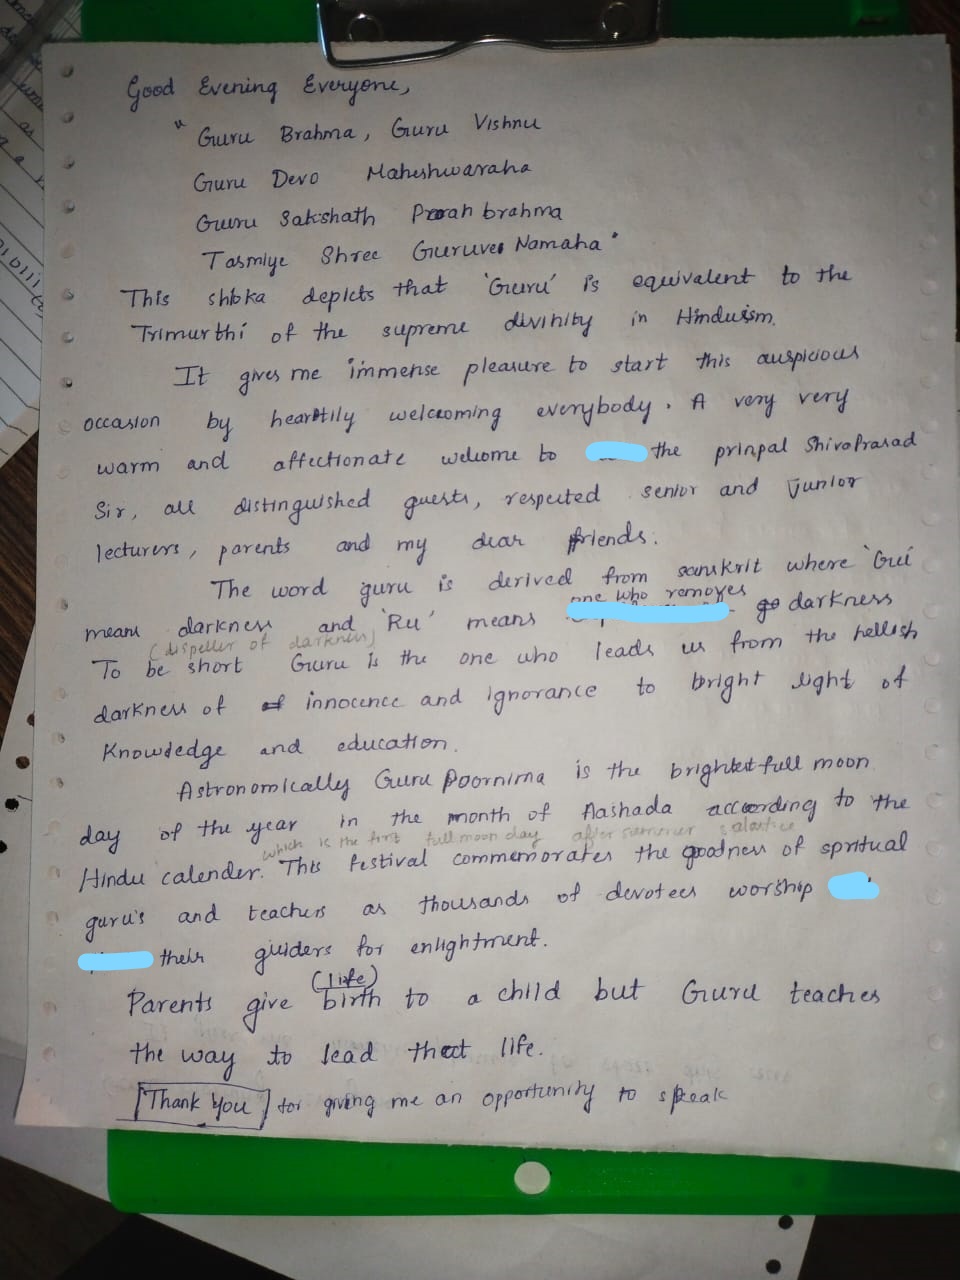 Good Evening Everyone,
" Guru Brahma, Guru Vishnu
Guru Devo Maheshwaraha
Guru Sakshath Parah brahma
Tasmiye Shree Guruve Namaha "
This shloka depicts that 'Guru' is equivalent to the
Trimurthi of the supreme divinity in Hinduism.
It gives me immense pleasure to start this auspicious
occasion by heartily welcoming everybody. A very very
warm and affectionate welcome to the prinpal ShivaPrasad
Sir, all distinguished guests, respected senior and junior
lecturers, parents and my dear friends.
The word guru is derived from sanskrit where 'Gu'
means darkness and 'Ru' means one who removes darkness
(dispeller of darkness)
To be short Guru is the one who leads us from the hellish
darkness of innocence and ignorance to bright light of
Knowledge and education.
Astronomically Guru Poornima is the brightest full moon
day of the year in the month of Aashada according to the
which is the first full moon day after summer solastice
Hindu calender. This festival commemorates the goodness of spritual
guru's and teachers as thousands of devotees worship
their guiders for enlightment.
(life)
Parents give birth to a child but Guru teaches
the way to lead that life.
[Thank You] for giving me an opportunity to speak